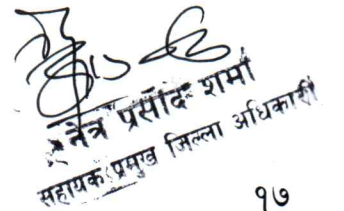 नेत्र प्रसाद शर्मा
सहायक प्रमुख जिल्ला अधिकारी
१७